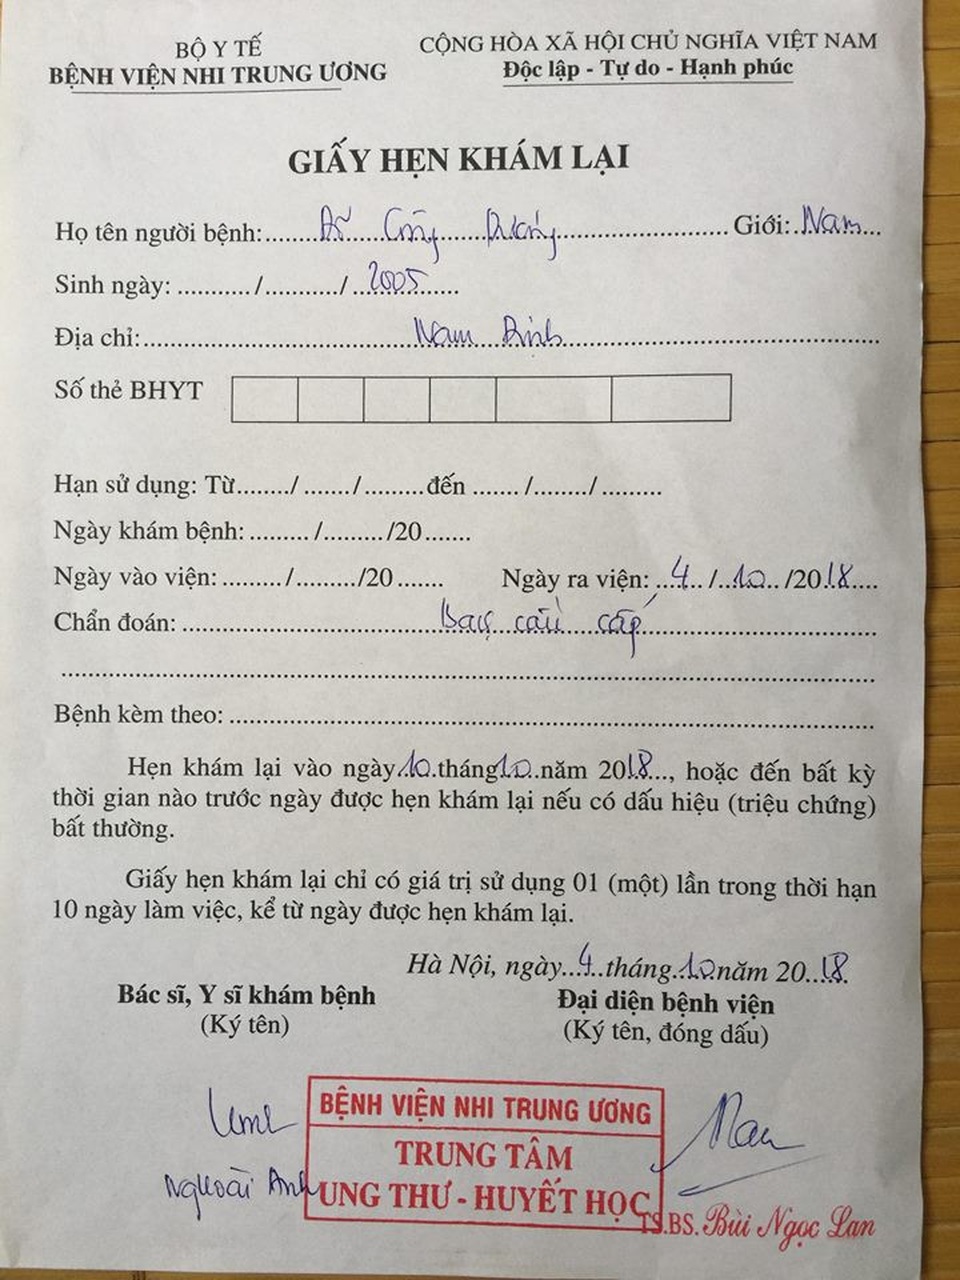 BỘ Y TẾ
BỆNH VIỆN NHI TRUNG ƯƠNG
CỘNG HÒA XÃ HỘI CHỦ NGHĨA VIỆT NAM
Độc lập - Tự do - Hạnh phúc
GIẤY HẸN KHÁM LẠI
Họ tên người bệnh:.......Đỗ....Công......................... Giới:.Nam...
Sinh ngày: .........../.........../ ..2005......
Địa chỉ:...............Nam...Định..................
Số thẻ BHYT
Hạn sử dụng: Từ......../ ......./ .........đến ......./......../ .........
Ngày khám bệnh: ........./........./20.......
Ngày vào viện: ........./........./20 ....... Ngày ra viện: ..4.. /..10.. /2018....
Chẩn đoán: ...............Bạch cầu cấp...............
Bệnh kèm theo: ...............
Hẹn khám lại vào ngày.10.tháng10..năm 2018..., hoặc đến bất kỳ
thời gian nào trước ngày được hẹn khám lại nếu có dấu hiệu (triệu chứng)
bất thường.
Giấy hẹn khám lại chỉ có giá trị sử dụng 01 (một) lần trong thời hạn
10 ngày làm việc, kể từ ngày được hẹn khám lại.
Hà Nội, ngày...4..tháng.10.năm 20..18.
Bác sĩ, Y sĩ khám bệnh
(Ký tên)
Đại diện bệnh viện
(Ký tên, đóng dấu)
BỆNH VIỆN NHI TRUNG ƯƠNG
TRUNG TÂM
UNG THƯ - HUYẾT HỌC
Anh
TS.BS. Bùi Ngọc Lan